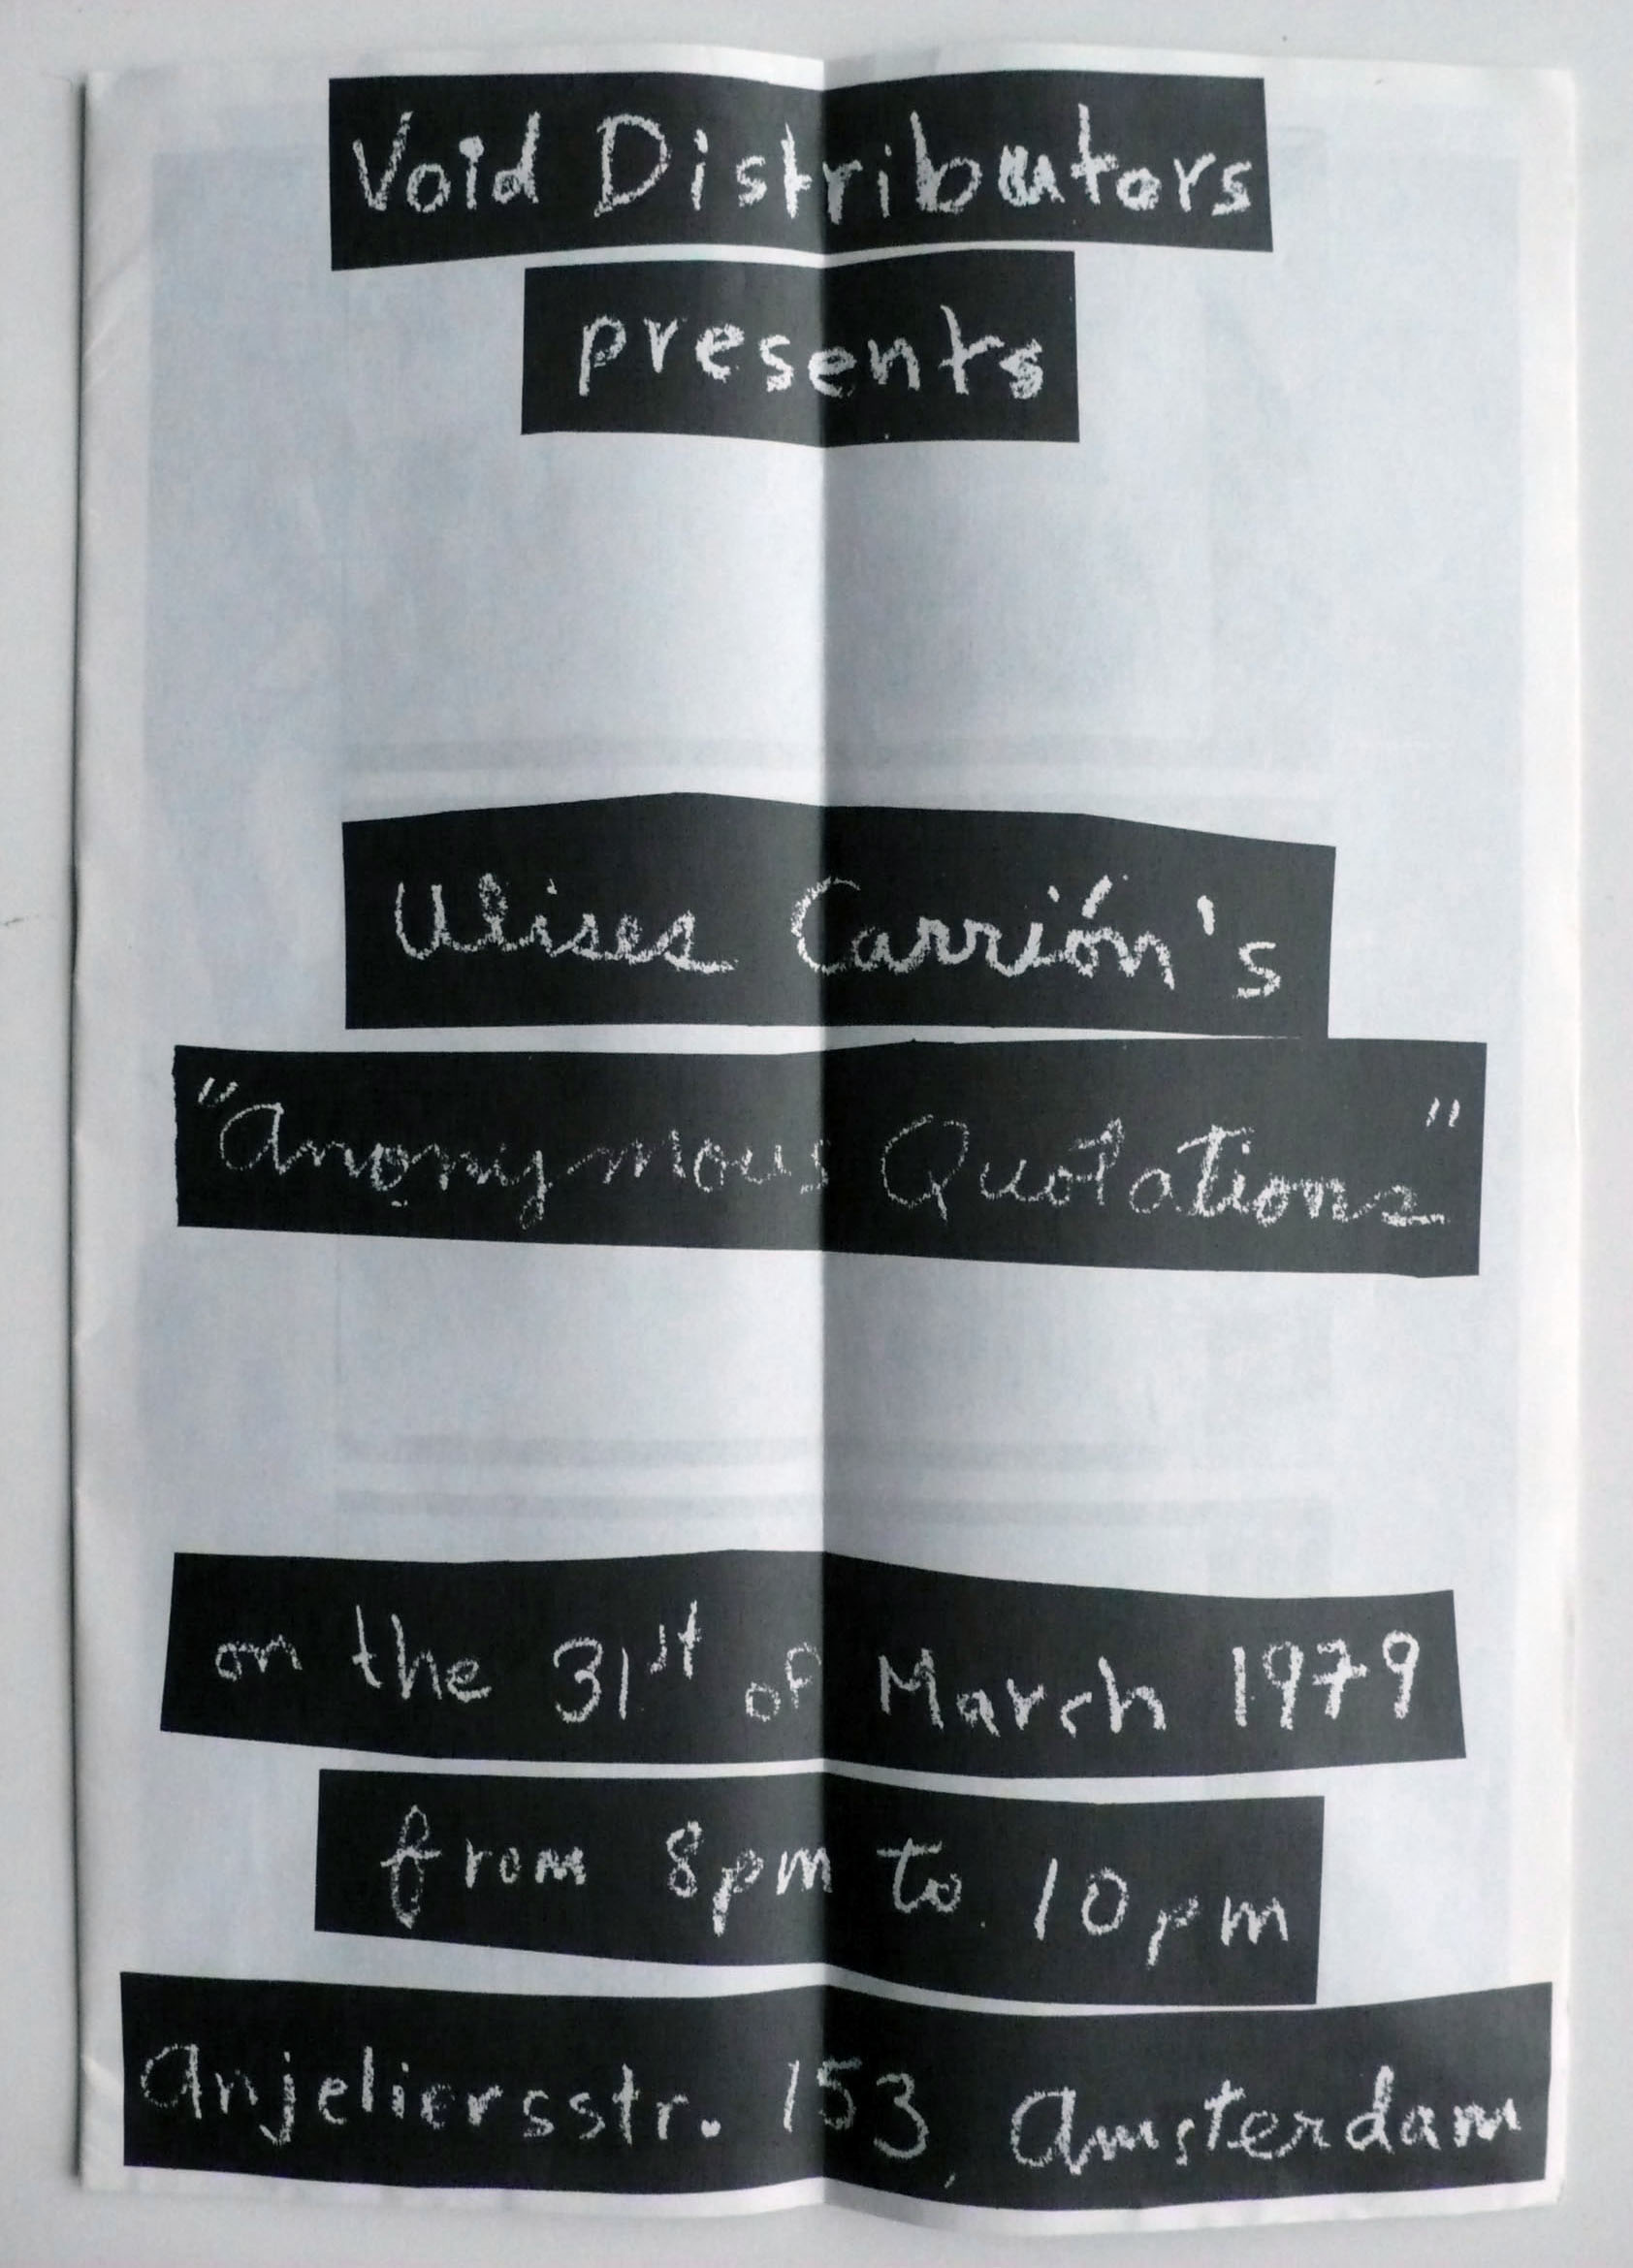 Void Distributors
presents
Ulises Carrión's
"Anonymous Quotations"
on the 31st of March 1979
from 8pm to 10pm
Anjeliersstr. 153, Amsterdam